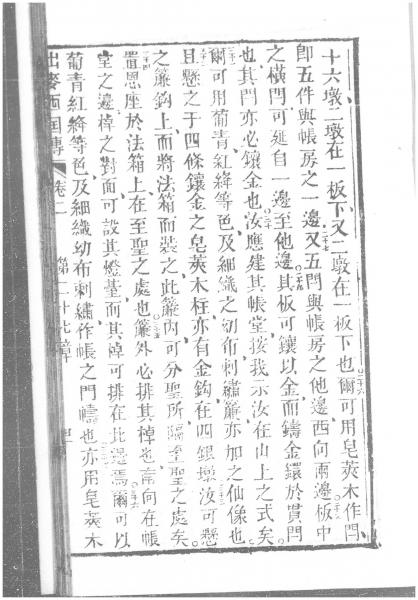 十六墩二墩在一板下又二墩在一板下也二十六爾可用皂莢木作閂
即五件與帳房之一邊二十七又五閂與帳房之他邊西向兩邊板中
之橫閂可延自一邊至他邊二十九其板可鑲以金而鑄金鐶於貫閂
也其閂亦必鑲金也三十汝應建其帳堂按我示汝在山上之式矣
爾可用葡青紅絳等色及細織之幼布刺繡簾亦加之仙像也
且懸之于四條鑲金之皂莢木柱亦有金鈎在四銀墩汝可懸
之簾鈎上而將法箱而裝之此簾內可分聖所隔至聖之處矣
置恩座於法箱上在至聖之處也三十五簾外必排其棹也南向在帳
堂之邊棹之對面可設其燈臺而其棹可排在北邊焉三十六爾可以
葡青紅絳等色及細織幼布刺繡作帳之門幬也亦用皂莢木
出麥西國傳 卷二 第二十七章